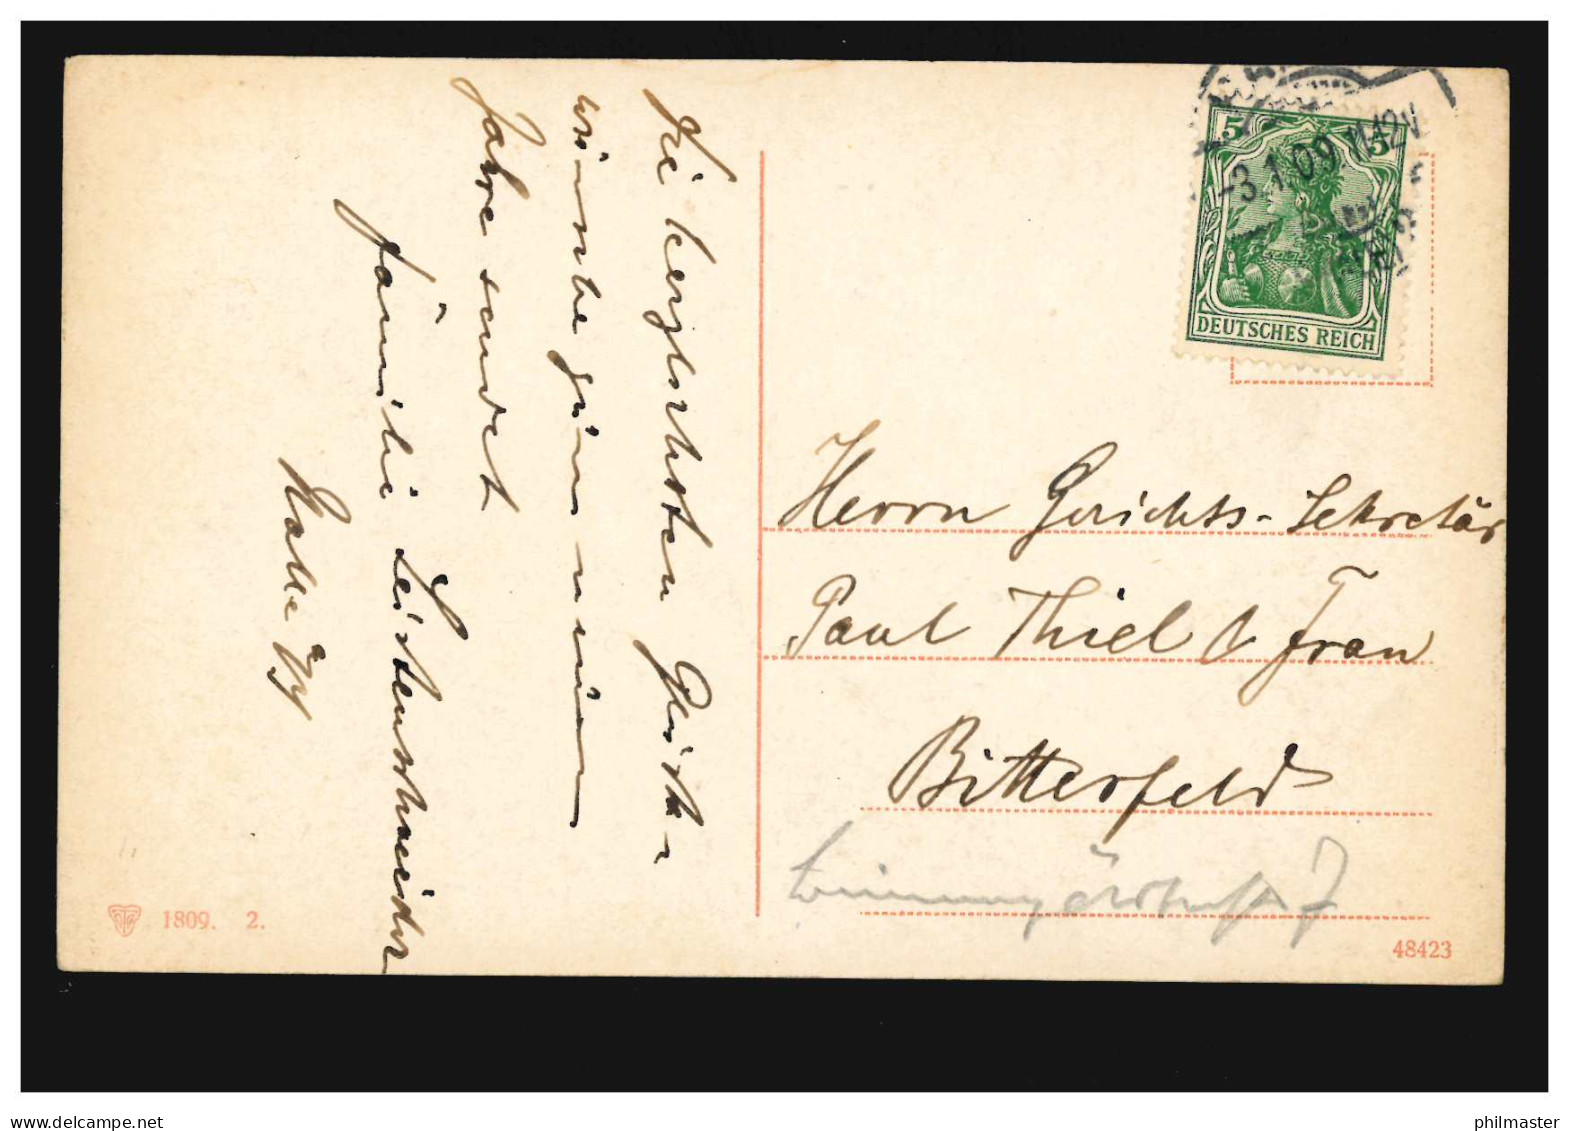 Die herzlichsten Glück-
wünsche zum neuen
Jahre sendet
Familie Leistenschneider
Halle
5 5
-3.1.09.11-12V.
DEUTSCHES REICH
Herrn Gerichts-Sekretär
Paul Thiel & Frau
Bitterfeld
7
1809. 2.
48423
www.delcampe.net
philmaster